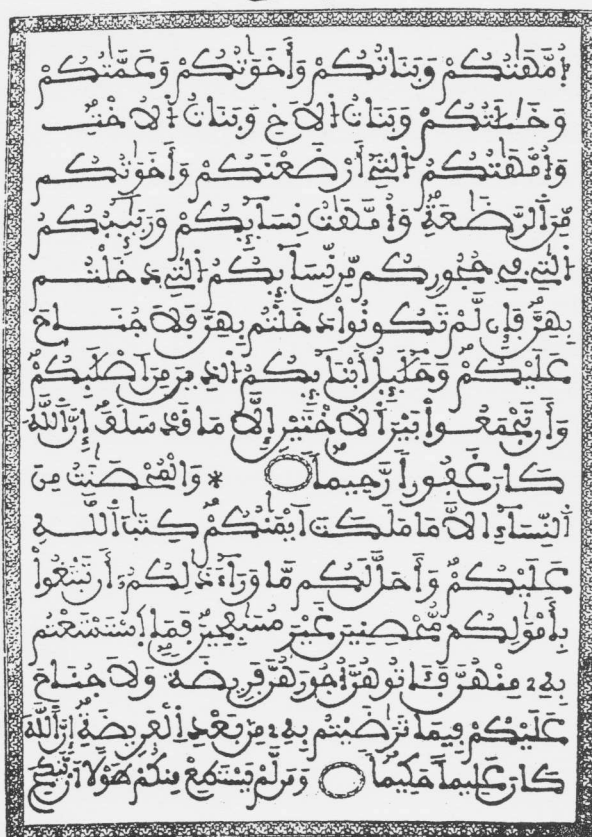 أُمَّهَٰتُكُمْ وَبَنَاتُكُمْ وَأَخَوَٰتُكُمْ وَعَمَّٰتُكُمْ
وَخَٰلَٰتُكُمْ وَبَنَاتُ الْأَخِ وَبَنَاتُ الْأُخْتِ
وَأُمَّهَٰتُكُمُ الَّتِي أَرْضَعْنَكُمْ وَأَخَوَٰتُكُم
مِّنَ الرَّضَٰعَةِ وَأُمَّهَٰتُ نِسَآئِكُمْ وَرَبَٰٓئِبُكُمُ
الَّتِي فِي حُجُورِكُم مِّن نِّسَآئِكُمُ الَّتِي دَخَلْتُم
بِهِنَّ فَإِن لَّمْ تَكُونُوا دَخَلْتُم بِهِنَّ فَلَا جُنَاحَ
عَلَيْكُمْ وَحَلَٰٓئِلُ أَبْنَآئِكُمُ الَّذِينَ مِنْ أَصْلَٰبِكُمْ
وَأَن تَجْمَعُوا بَيْنَ الْأُخْتَيْنِ إِلَّا مَا قَدْ سَلَفَ إِنَّ اللَّهَ
كَانَ غَفُوراً رَّحِيماً * وَالْمُحْصَنَٰتُ مِنَ
النِّسَآءِ الَّا مَا مَلَكَتَ ايْمَٰنُكُمْ كِتَٰبَ اللَّهِ
عَلَيْكُمْ وَأَحَلَّ لَكُم مَّا وَرَآءَ ذَٰلِكُمُ أَن تَبْتَغُوا
بِأَمْوَٰلِكُم مُّحْصِنِينَ غَيْرَ مُسَٰفِحِينَ فَمَا اسْتَمْتَعْتُم
بِهِ مِنْهُنَّ فَـَٔاتُوهُنَّ أُجُورَهُنَّ فَرِيضَةً وَلَا جُنَاحَ
عَلَيْكُمْ فِيمَا تَرَٰضَيْتُم بِهِ مِن بَعْدِ الْفَرِيضَةِ إِنَّ اللَّهَ
كَانَ عَلِيماً حَكِيماً وَمَن لَّمْ يَسْتَطِعْ مِنكُمْ طَوْلاً أَنْ يَّنكِحَ